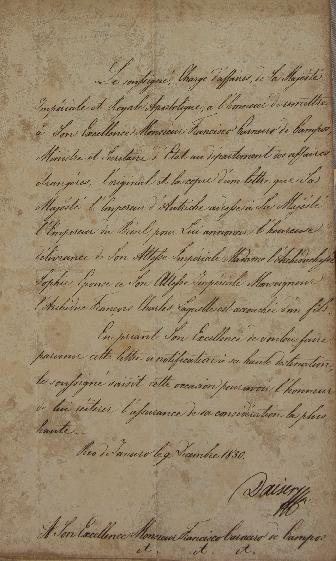 Le soussigné, Chargé d'affaires, de Sa Majesté
Impériale et Royale Apostolique, a l'honneur de remettre
à Son Excellence Monsieur Francisco Carneiro de Campos
Ministre et Secrétaire d'Etat au département des affaires
étrangères, l'original et la copie d'une lettre que Sa
Majesté l'Empereur d'Autriche adresse à Sa Majesté
l'Empereur du Brésil pour Lui annoncer l'heureuse
délivrance de Son Altesse Impériale Madame l'Archiduchesse
Sophie Epouse de Son Altesse Impériale Monseigneur
l'Archiduc François Charles Laquelle est accouchée d'un fils.
En priant Son Excellence de vouloir faire
parvenir cette lettre de notification à sa haute destination,
le soussigné saisit cette occasion pour avoir l'honneur
de lui réitérer l'assurance de sa considération la plus
haute.
Rio de Janeiro le 9 Decembre 1830.
Daiser
A Son Excellence Monsieur Francisco Carneiro de Campos